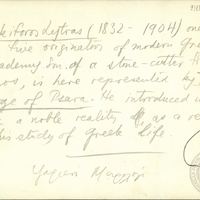 kiforos Lytras (1832 - 1904) one
five originators of modern Gre
ademy son of a stone-cutter f
os, is here represented by
ge of Psara. He introduced
a noble reality as a re
his study of Greek life.